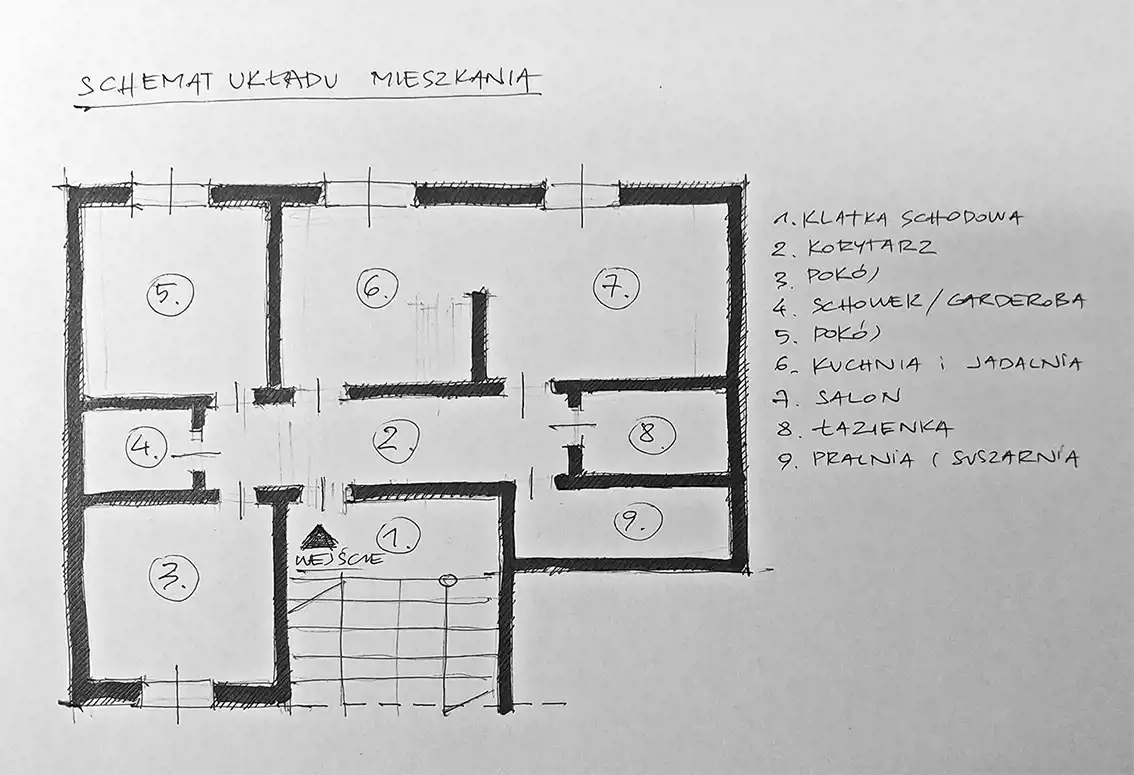 SCHEMAT UKŁADU MIESZKANIA
5.
6.
7.
4.
2.
8.
3.
1.
9.
WEJŚCIE
1. KLATKA SCHODOWA
2. KORYTARZ
3. POKÓJ
4. SCHOWEK/GARDEROBA
5. POKÓJ
6. KUCHNIA i JADALNIA
7. SALON
8. ŁAZIENKA
9. PRALNIA I SUSZARNIA